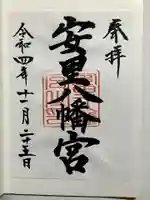 奉拝
安里八幡宮
令和四年十一月二十三日